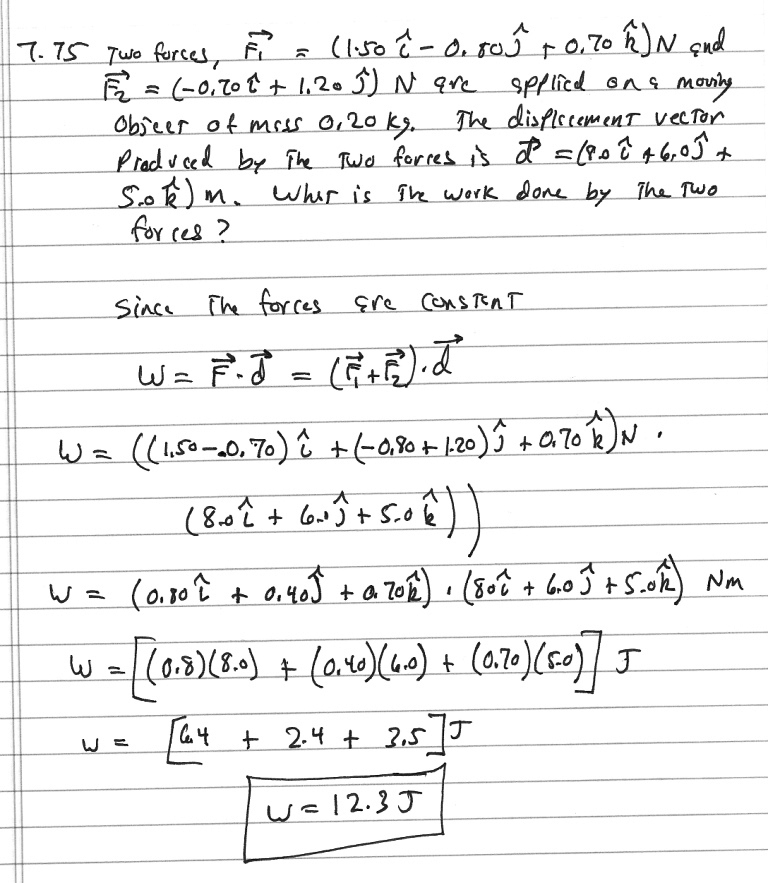 7.75 Two forces, F₁⃗ = (1.50 î - 0.80 ĵ + 0.70 k̂) N and
F₂⃗ = (-0.70 î + 1.20 ĵ) N are applied on a moving
Object of mass 0.20 kg. The displacement vector
Produced by The Two forces is d⃗ = (8.0 î + 6.0 ĵ +
5.0 k̂) m. What is The work done by The Two
forces?
Since The forces are constant
W = F⃗ · d⃗ = (F₁⃗ + F₂⃗) · d⃗
W = ((1.50 - 0.70) î + (-0.80 + 1.20) ĵ + 0.70 k̂) N ·
(8.0 î + 6.0 ĵ + 5.0 k̂))
W = (0.80 î + 0.40 ĵ + 0.70 k̂) · (8.0 î + 6.0 ĵ + 5.0 k̂) Nm
W = [(0.8)(8.0) + (0.40)(6.0) + (0.70)(5.0)] J
W = [6.4 + 2.4 + 3.5] J
W = 12.3 J